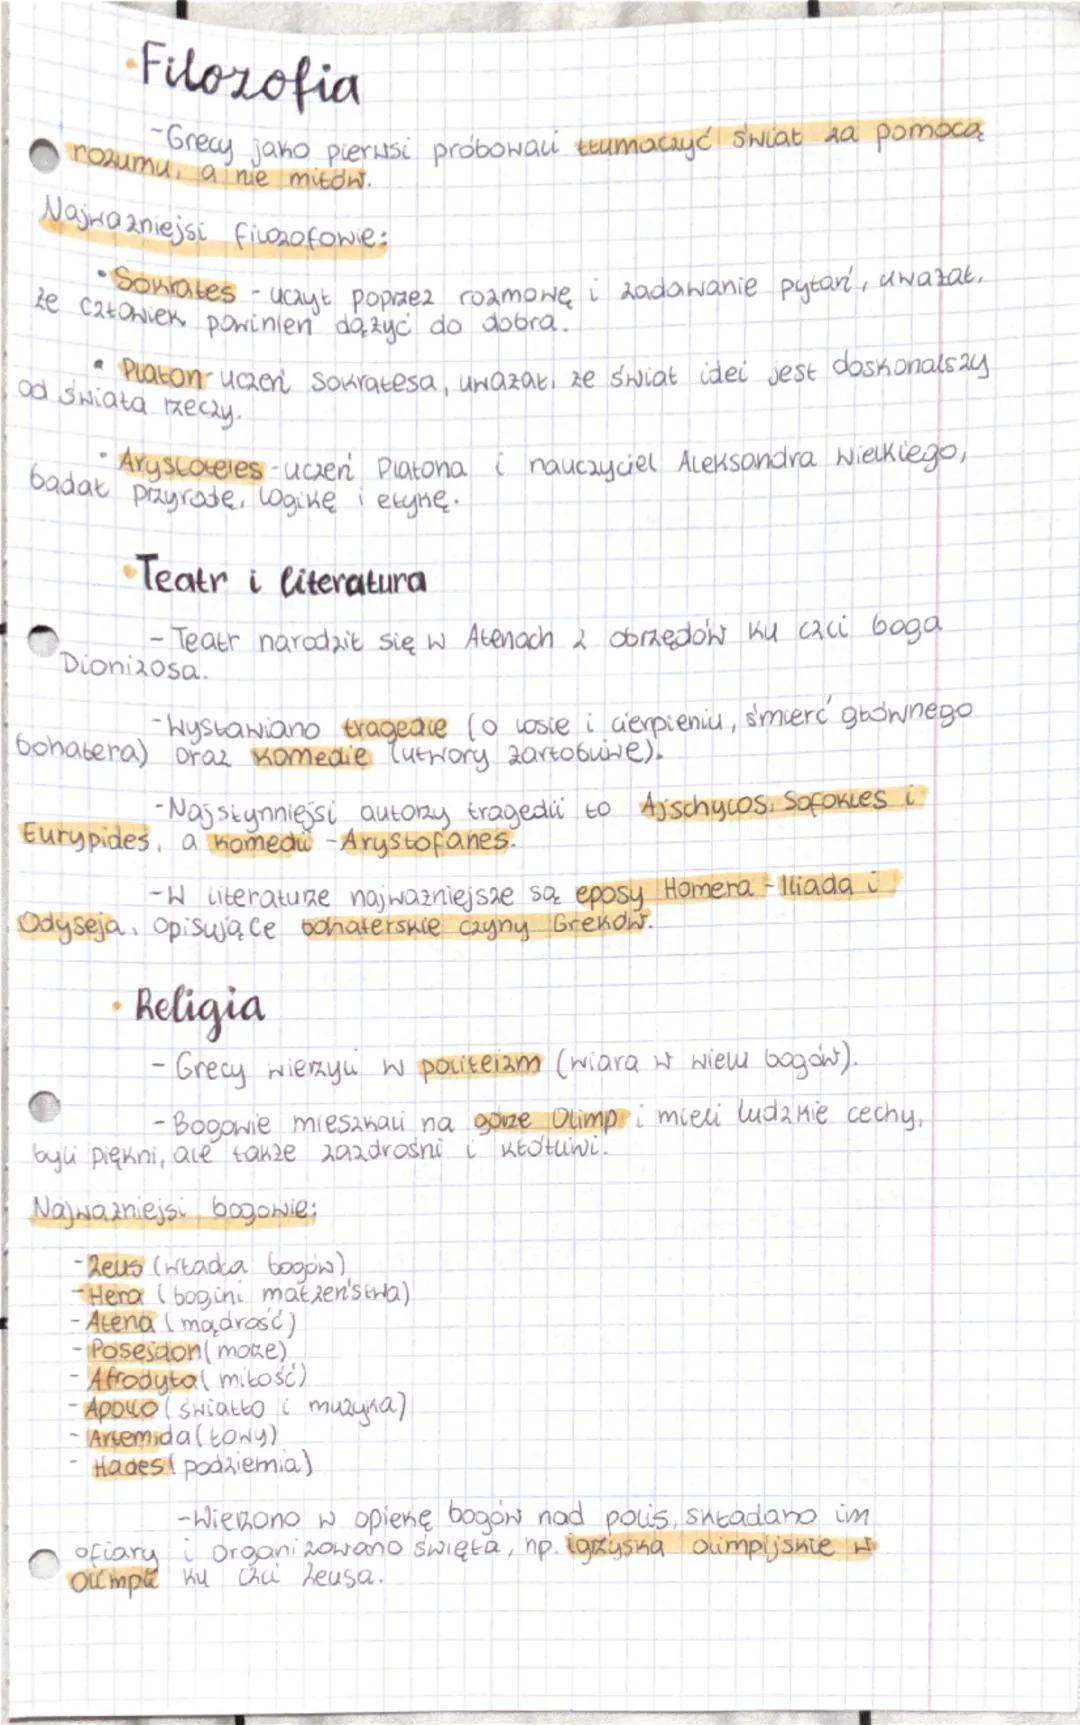 •Filozofia
-Grecy jako pierwsi próbowali tłumaczyć świat za pomocą
rozumu, a nie mitów.
Najważniejsi filozofowie:
• Sokrates - uczył poprzez rozmowę i zadawanie pytań, uważał,
że człowiek powinien dążyć do dobra.
• Platon - uczeń Sokratesa, uważał, że świat idei jest doskonalszy
od świata rzeczy.
• Arystoteles - uczeń Platona i nauczyciel Aleksandra Wielkiego,
badał przyrodę, logikę i etykę.
•Teatr i literatura
- Teatr narodził się w Atenach z obrzędów ku czci boga
Dionizosa.
-Wystawiano tragedie (o losie i cierpieniu, śmierć głównego
bohatera) oraz komedie (utwory żartobliwe).
-Najsłynniejsi autorzy tragedii to Ajschylos, Sofokles i
Eurypides, a komedii - Arystofanes.
-W literaturze najważniejsze są eposy Homera - Iliada i
Odyseja, opisujące bohaterskie czyny Greków.
• Religia
- Grecy wierzyli w politeizm (wiara w wielu bogów).
-Bogowie mieszkali na górze Olimp i mieli ludzkie cechy,
byli piękni, ale także zazdrośni i kłótliwi.
Najważniejsi bogowie:
- Zeus (władca bogów)
- Hera (bogini małżeństwa)
- Atena (mądrość)
- Posejdon (morze)
- Afrodyta (miłość)
- Apollo (światło i muzyka)
- Artemida (łowy)
- Hades (podziemia)
-Wierzono w opiekę bogów nad polis, składano im
ofiary i organizowano święta, np. igrzyska olimpijskie w
Olimpii ku czci Zeusa.